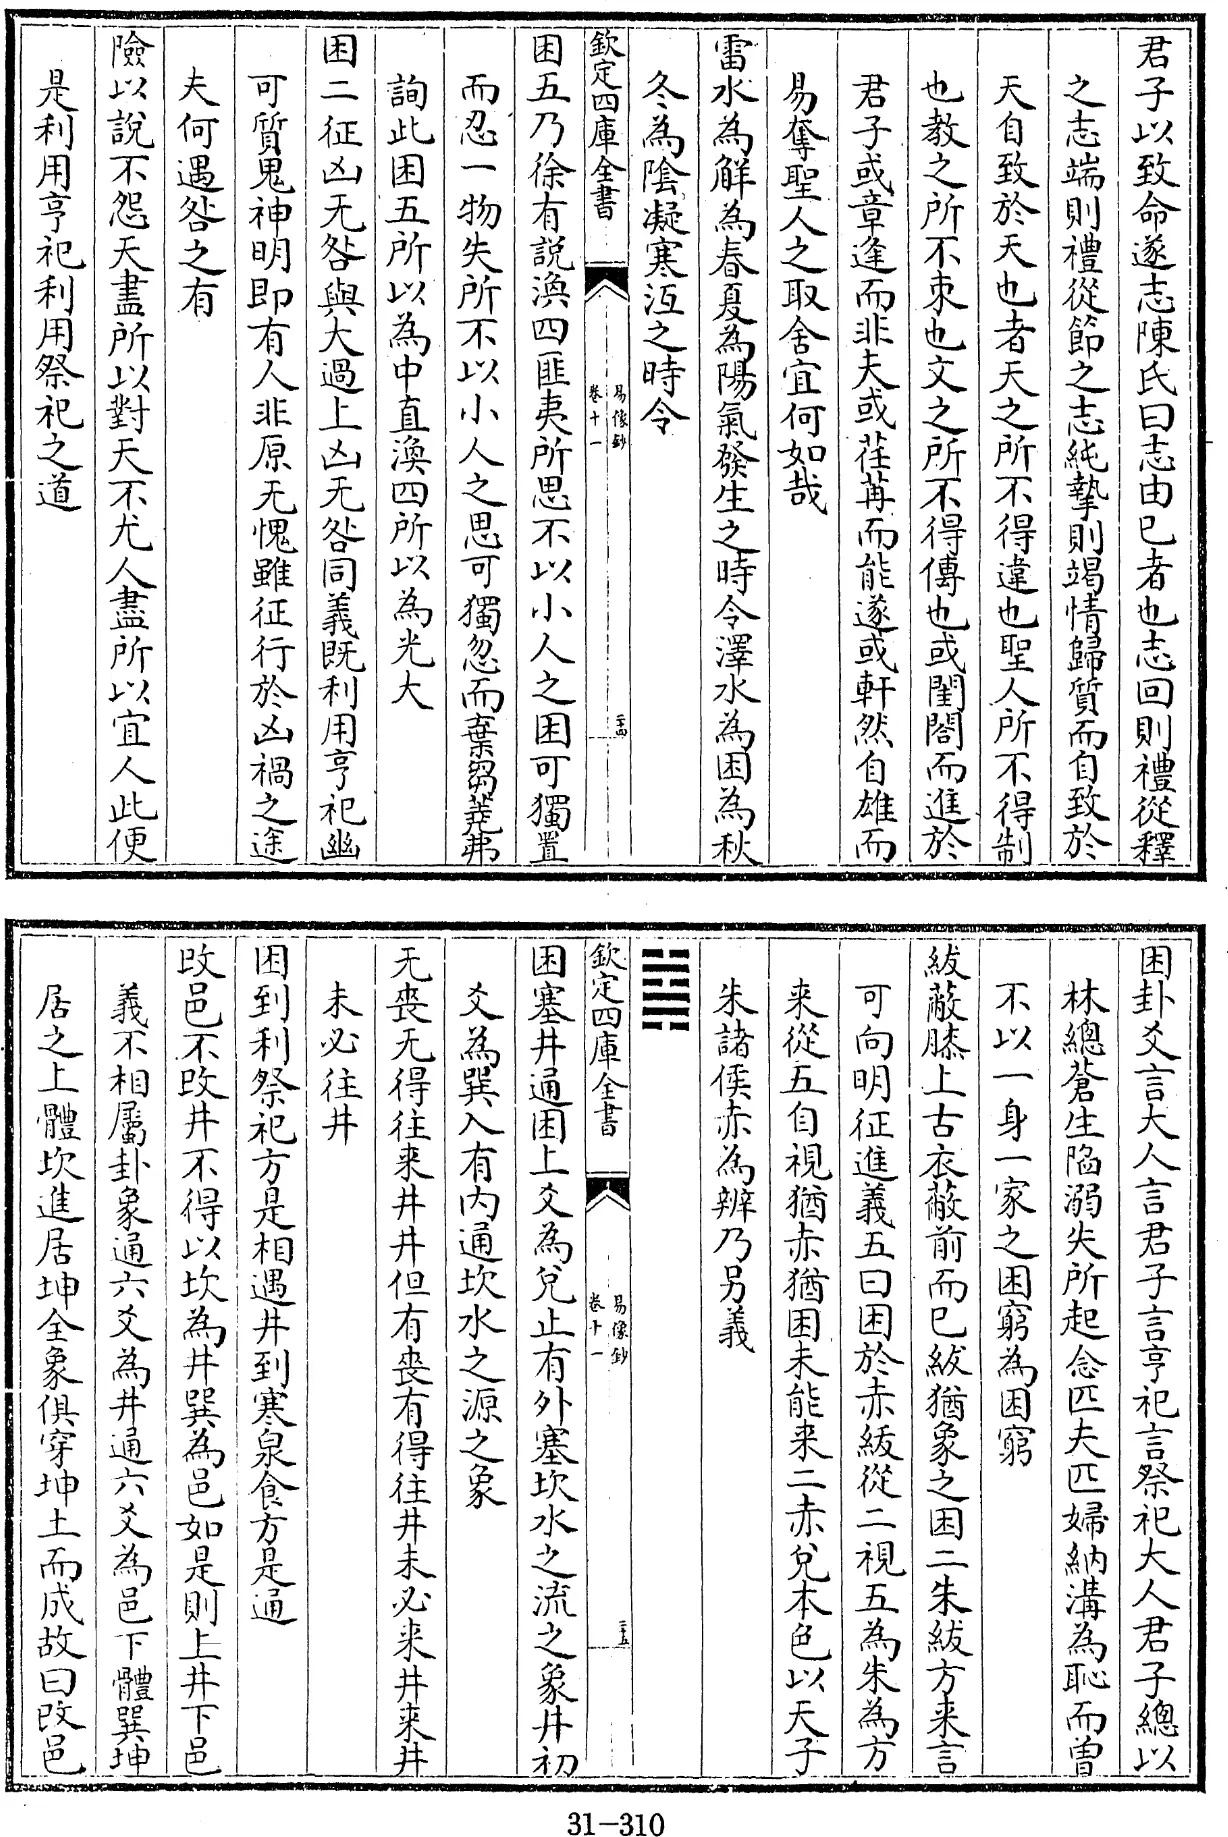 君子以致命遂志陳氏曰志由已者也志回則禮從釋
之志端則禮從節之志純摯則竭情歸質而自致於
天自致於天也者天之所不得違也聖人所不得制
也教之所不束也文之所不得傳也或閨閤而進於
君子或章逢而非夫或荏苒而能遂或軒然自雄而
易奪聖人之取舍宜何如哉
雷水為解為春夏為陽氣發生之時令澤水為困為秋
冬為陰凝寒沍之時令
欽定四庫全書
易像鈔
卷十一
二十四
困五乃徐有說渙四匪夷所思不以小人之困可獨置
而忍一物失所不以小人之思可獨忽而棄芻蕘弗
詢此困五所以為中直渙四所以為光大
困二征凶无咎與大過上凶无咎同義既利用亨祀幽
可質鬼神明即有人非原无愧雖征行於凶禍之途
夫何遇咎之有
險以說不怨天盡所以對天不尤人盡所以宜人此便
是利用亨祀利用祭祀之道
困卦爻言大人言君子言亨祀言祭祀大人君子總以
林總蒼生陷溺失所起念匹夫匹婦納溝為恥而曾
不以一身一家之困窮為困窮
紱蔽膝上古衣蔽前而已紱猶象之困二朱紱方来言
可向明征進義五曰困於赤紱從二視五為朱為方
来從五自視猶赤猶困未能来二赤兌本色以天子
朱諸侯赤為辨乃另義
䷯
欽定四庫全書
易像鈔
卷十一
二十五
困塞井通困上爻為兌止有外塞坎水之流之象井初
爻為巽入有内通坎水之源之象
无喪无得往来井井但有喪有得往井未必来井来井
未必往井
困到利祭祀方是相遇井到寒泉食方是通
改邑不改井不得以坎為井巽為邑如是則上井下邑
義不相屬卦象通六爻為井通六爻為邑下體巽坤
居之上體坎進居坤全象俱穿坤土而成故曰改邑
31-310